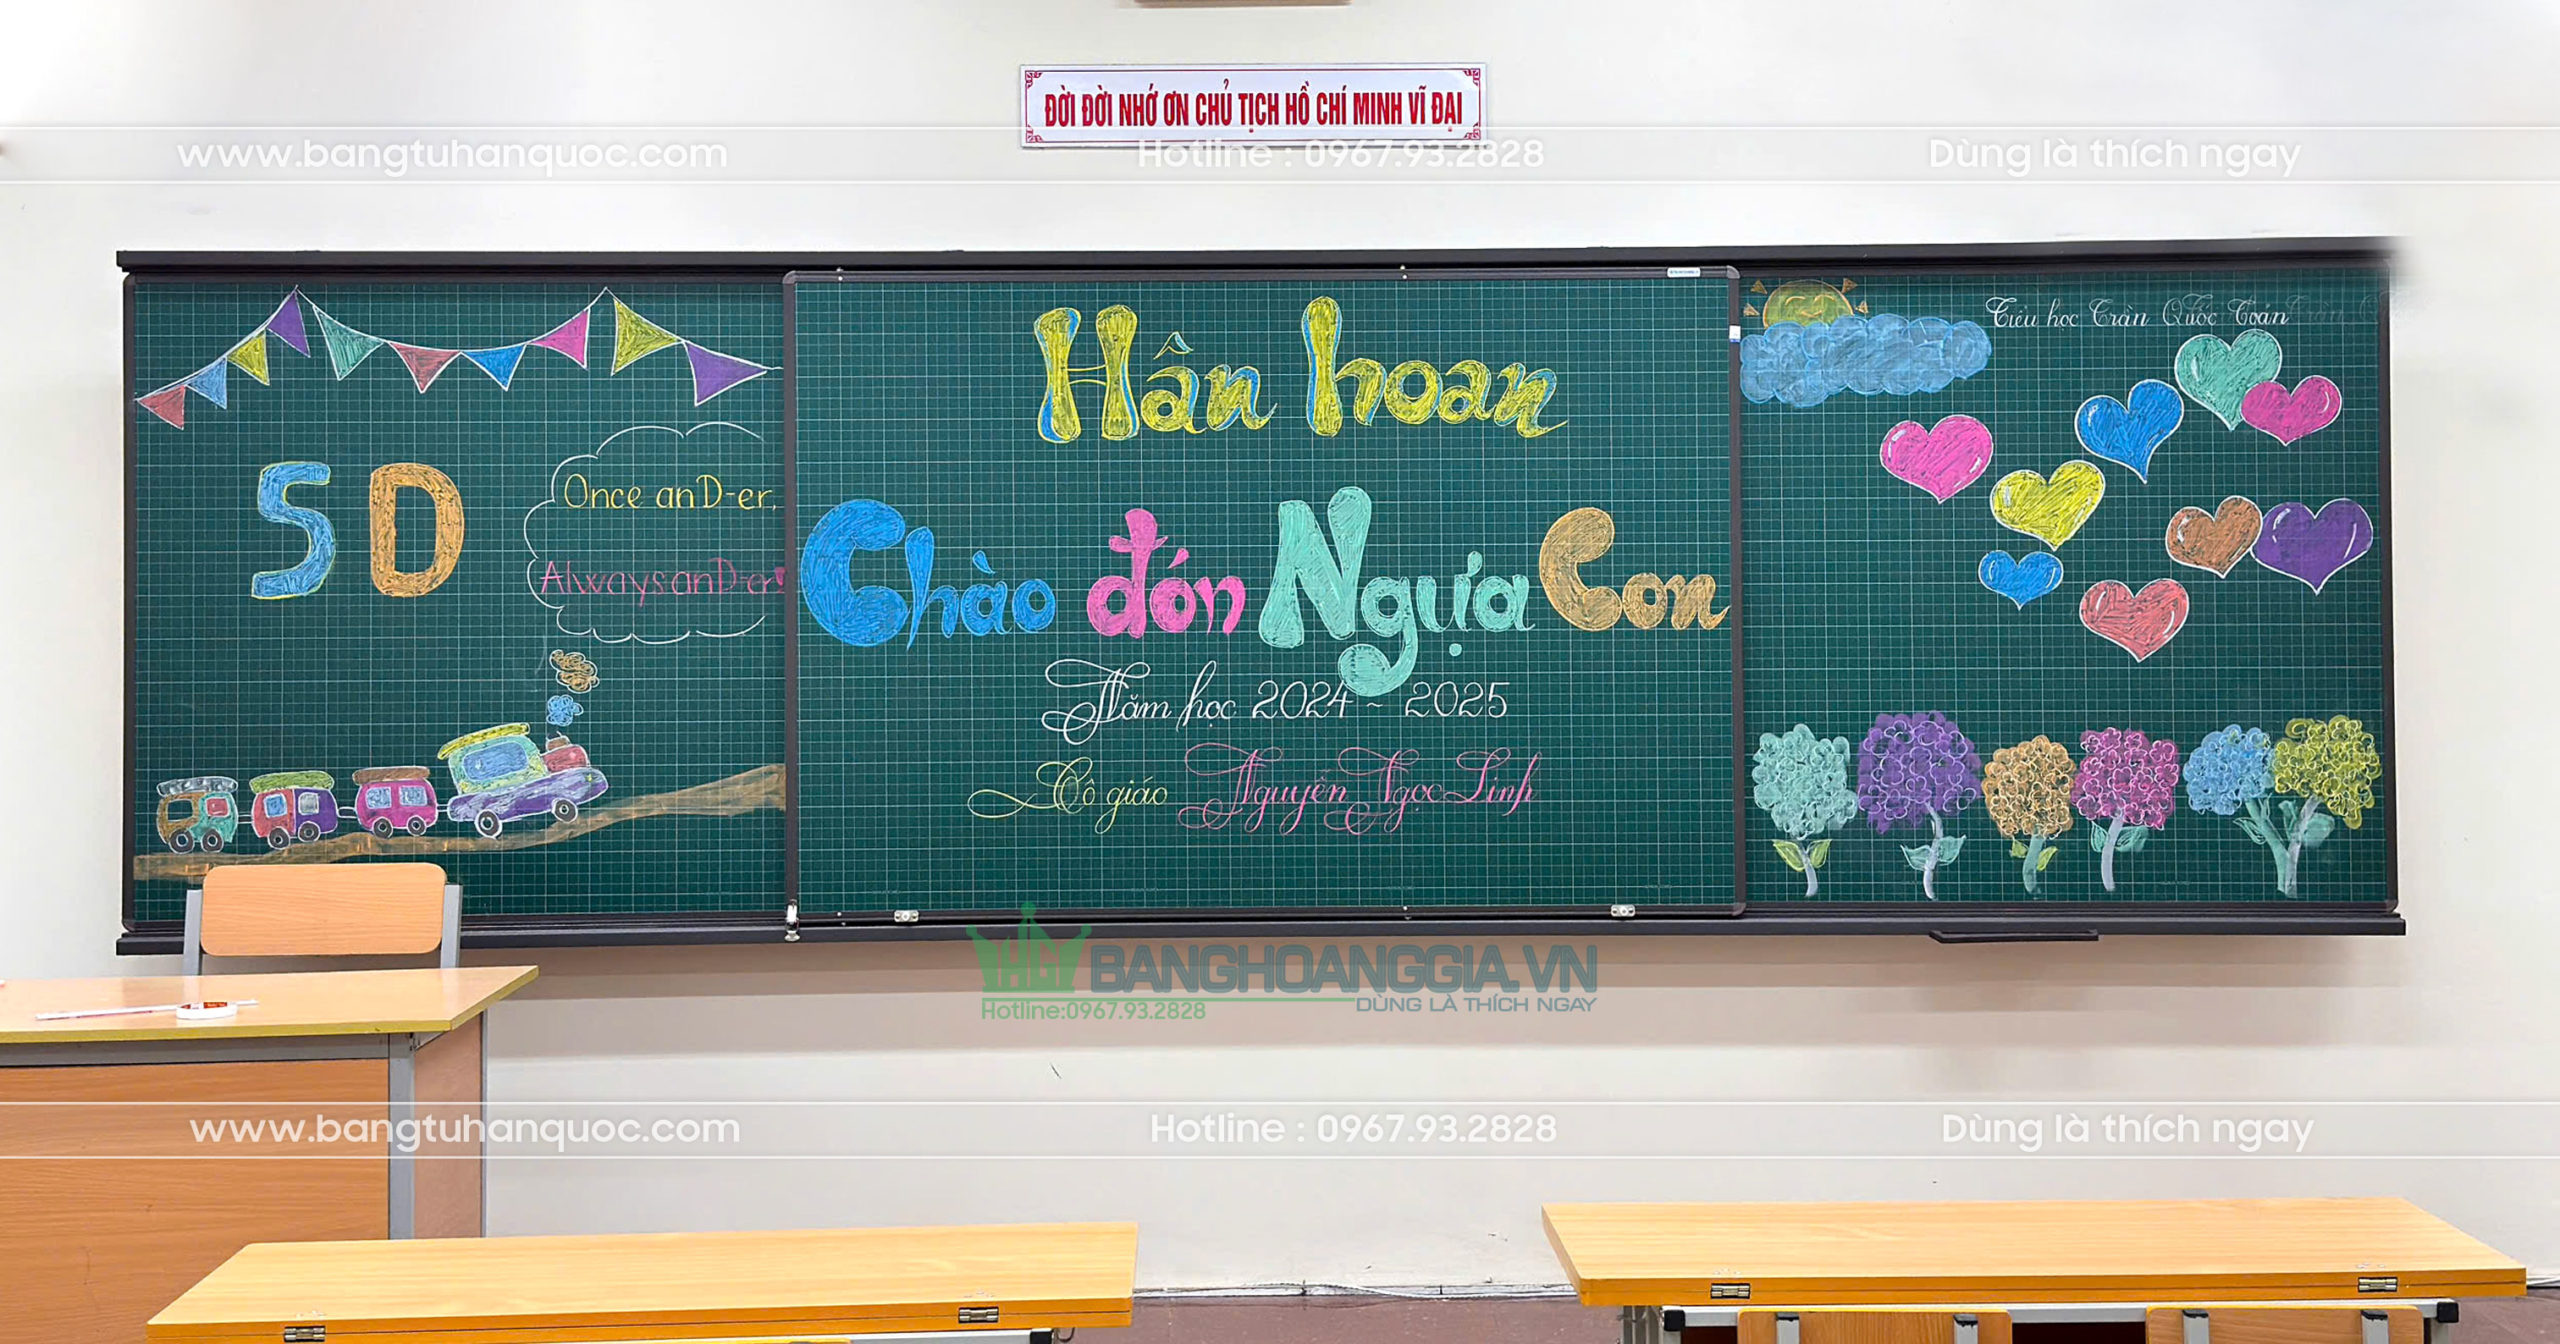 ĐỜI ĐỜI NHỚ ƠN CHỦ TỊCH HỒ CHÍ MINH VĨ ĐẠI
www.bangtuhanquoc.com
Hotline : 0967.93.2828
Dùng là thích ngay
5D
Once anD-er,
Always anD-er!
Hân hoan
Chào đón Ngựa Con
Năm học 2024 ~ 2025
Cô giáo Nguyễn Ngọc Linh
Tiểu học Trần Quốc Toản
BANGHOANGGIA.VN
Hotline:0967.93.2828
DÙNG LÀ THÍCH NGAY
www.bangtuhanquoc.com
Hotline : 0967.93.2828
Dùng là thích ngay